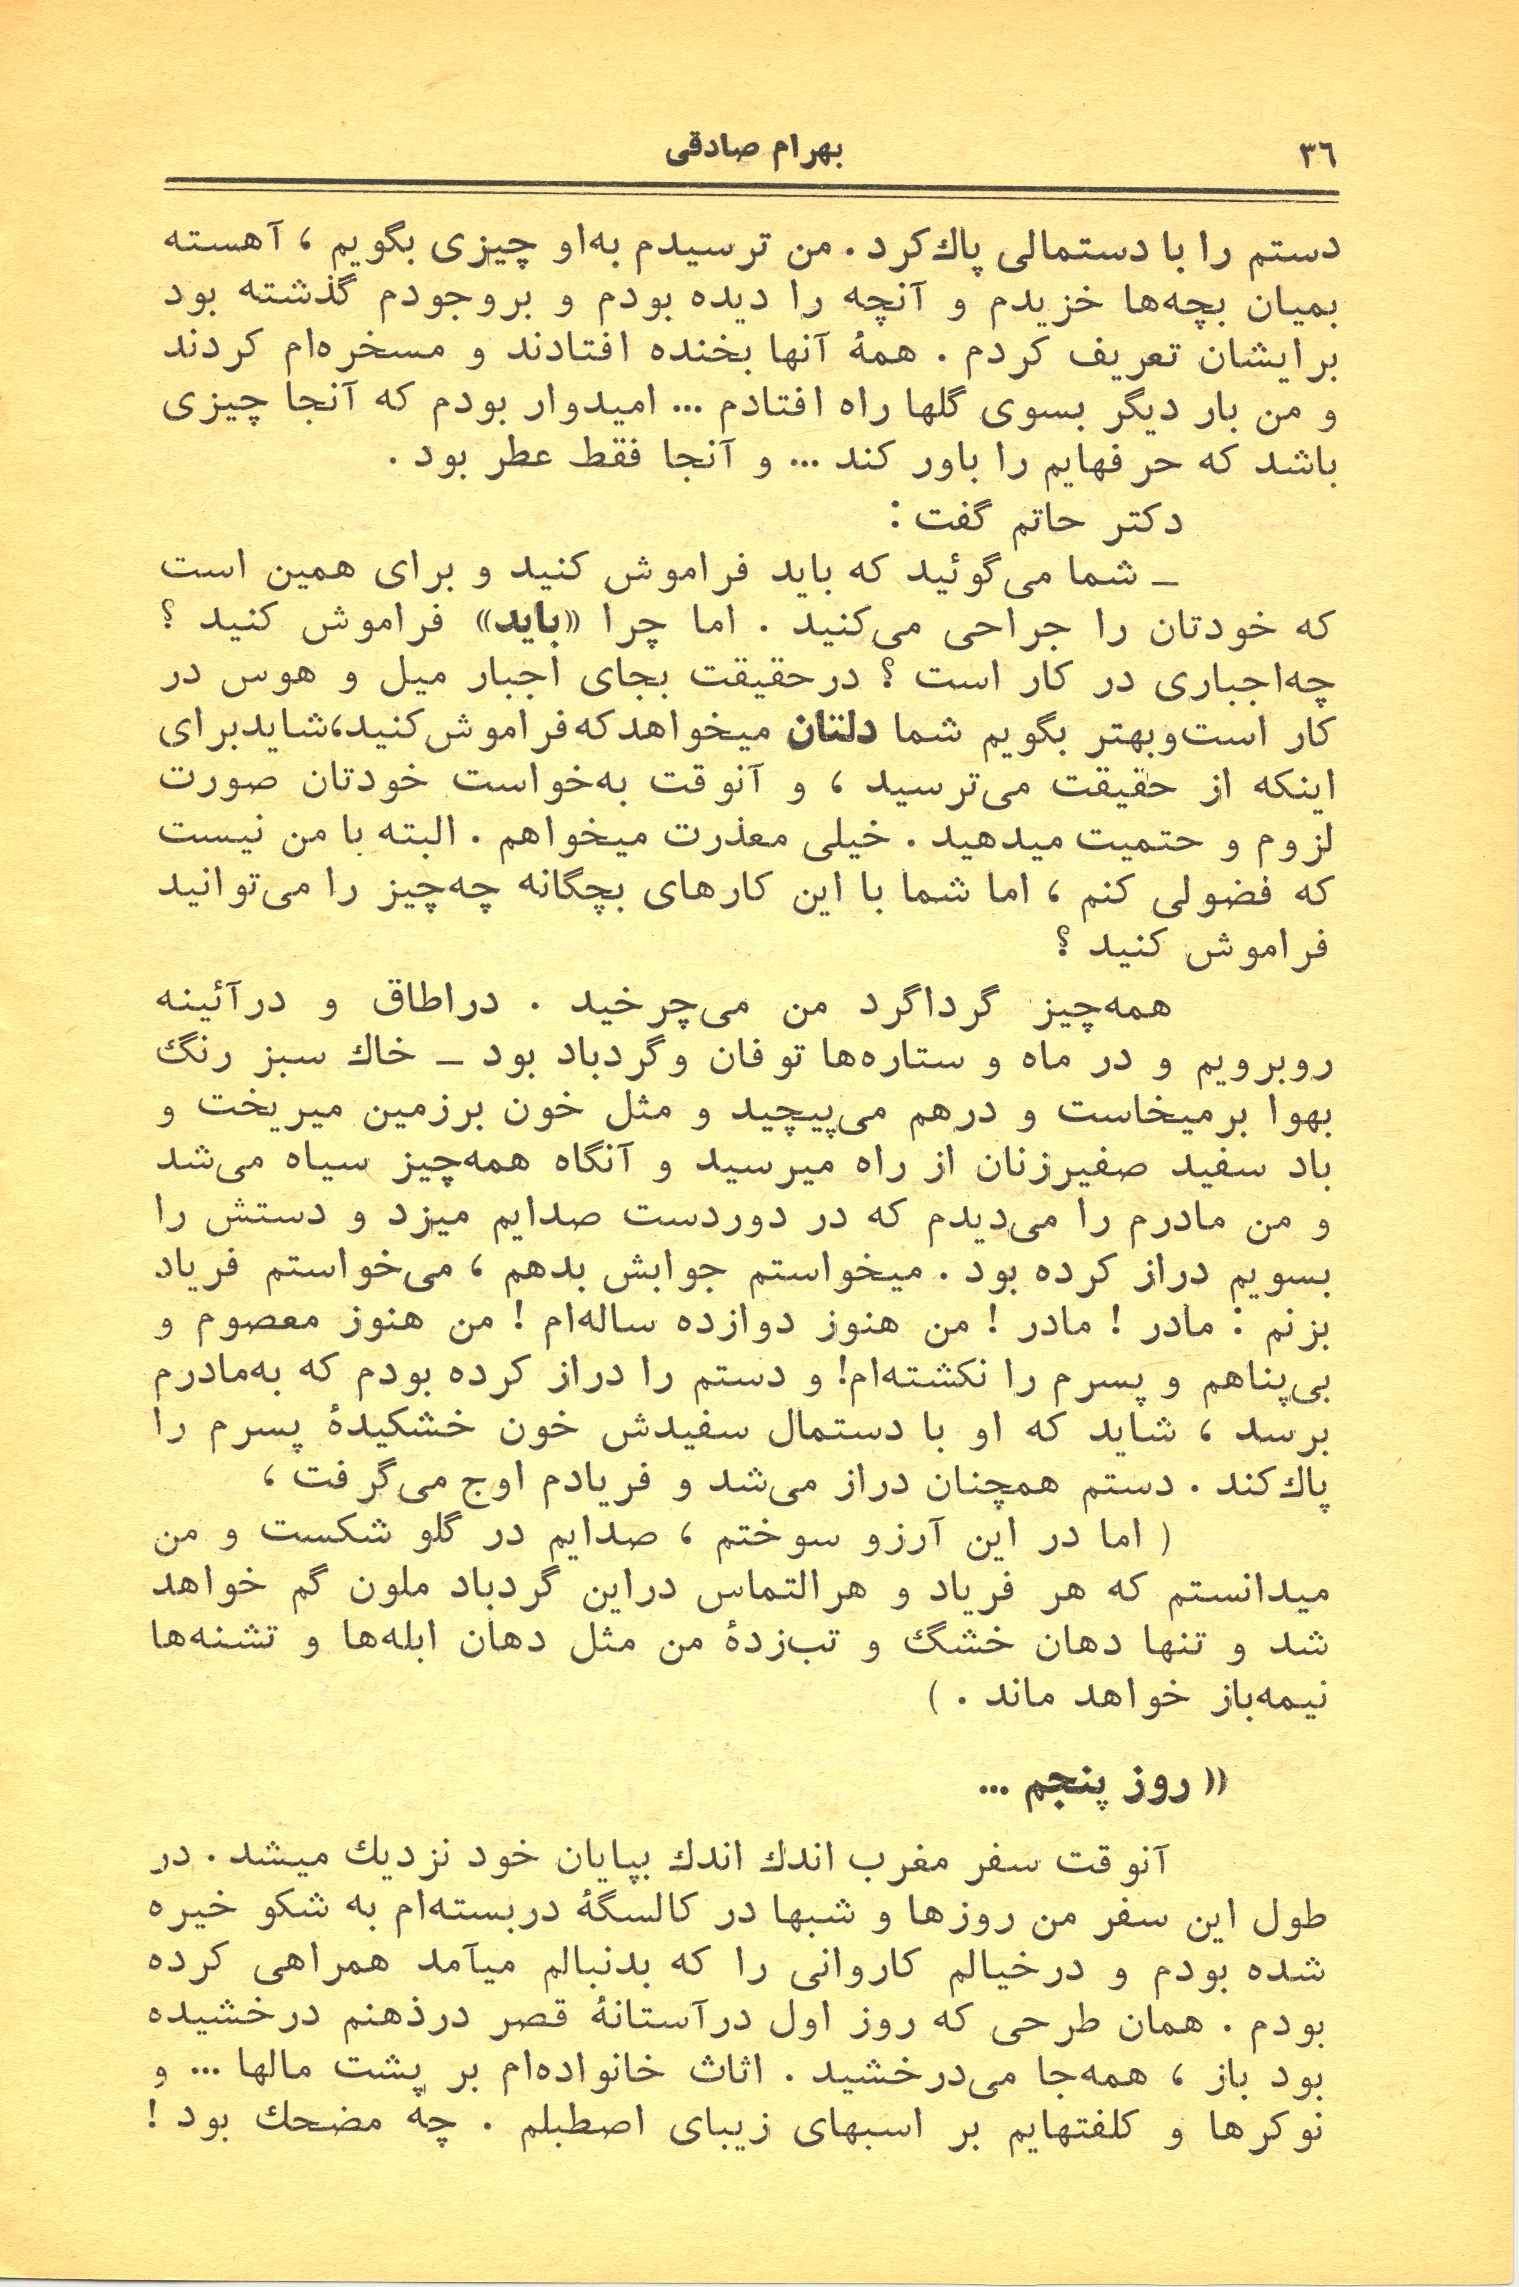 ۳۶
بهرام صادقی
دستم را با دستمالی پاك‌کرد . من ترسیدم به‌او چیزی بگویم ، آهسته
بمیان بچه‌ها خزیدم و آنچه را دیده بودم و بروجودم گذشته بود
برایشان تعریف کردم . همهٔ آنها بخنده افتادند و مسخره‌ام کردند
و من بار دیگر بسوی گلها راه افتادم ... امیدوار بودم که آنجا چیزی
باشد که حرفهایم را باور کند ... و آنجا فقط عطر بود .
دکتر حاتم گفت :
ـ شما می‌گوئید که باید فراموش کنید و برای همین است
که خودتان را جراحی می‌کنید . اما چرا «باید» فراموش کنید ؟
چه‌اجباری در کار است ؟ درحقیقت بجای اجبار میل و هوس در
کار است‌وبهتر بگویم شما دلتان میخواهدکه‌فراموش‌کنید،شایدبرای
اینکه از حقیقت می‌ترسید ، و آنوقت به‌خواست خودتان صورت
لزوم و حتمیت میدهید . خیلی معذرت میخواهم . البته با من نیست
که فضولی کنم ، اما شما با این کارهای بچگانه چه‌چیز را می‌توانید
فراموش کنید ؟
همه‌چیز گرداگرد من می‌چرخید . دراطاق و درآئینه
روبرویم و در ماه و ستاره‌ها توفان وگردباد بود ـ خاك سبز رنگ
بهوا برمیخاست و درهم می‌پیچید و مثل خون برزمین میریخت و
باد سفید صفیرزنان از راه میرسید و آنگاه همه‌چیز سیاه می‌شد
و من مادرم را می‌دیدم که در دوردست صدایم میزد و دستش را
بسویم دراز کرده بود . میخواستم جوابش بدهم ، می‌خواستم فریاد
بزنم : مادر ! مادر ! من هنوز دوازده ساله‌ام ! من هنوز معصوم و
بی‌پناهم و پسرم را نکشته‌ام! و دستم را دراز کرده بودم که به‌مادرم
برسد ، شاید که او با دستمال سفیدش خون خشکیدهٔ پسرم را
پاك‌کند . دستم همچنان دراز می‌شد و فریادم اوج می‌گرفت ،
( اما در این آرزو سوختم ، صدایم در گلو شکست و من
میدانستم که هر فریاد و هرالتماس دراین گردباد ملون گم خواهد
شد و تنها دهان خشگ و تب‌زدهٔ من مثل دهان ابله‌ها و تشنه‌ها
نیمه‌باز خواهد ماند . )
« روز پنجم ...
آنوقت سفر مغرب اندك اندك بپایان خود نزدیك میشد . در
طول این سفر من روزها و شبها در کالسگهٔ دربسته‌ام به شکو خیره
شده بودم و درخیالم کاروانی را که بدنبالم میآمد همراهی کرده
بودم . همان طرحی که روز اول درآستانهٔ قصر درذهنم درخشیده
بود باز ، همه‌جا می‌درخشید . اثاث خانواده‌ام بر پشت مالها ... و
نوکرها و کلفتهایم بر اسبهای زیبای اصطبلم . چه مضحك بود !